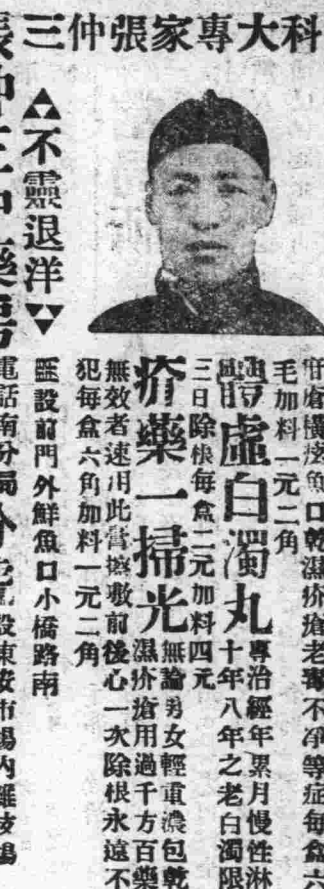 科大專家張仲三
疳瘡橫痃魚口乾濕疥瘡老瘡不淨等症每盒六
毛加料一元二角
腎虛白濁丸
專治經年累月慢性淋
十年八年之老白濁限
三日除根每盒二元加料四元
疥藥一掃光
無論男女輕重濃包乾
濕疥瘡用過千方百藥
無效者速用此膏擦敷前後心一次除根永遠不
犯每盒六角加料一元二角
不靈退洋
設前門外鮮魚口小橋路南
張仲三中藥房
電話南分局
設東安市場內雜技場